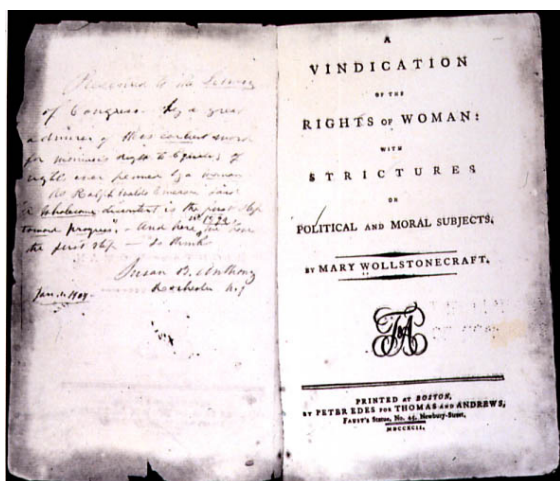 Presented to the Library
of Congress by a great
admirer of this earliest word
for woman's right to Equality of
rights ever penned by a woman
As Ralph Waldo Emerson said
"A wholesome discontent is the first step
toward progress." And here, in 1792, we have
the first step — So thinks
Susan B. Anthony
Rochester N.Y
Jan. 1. 1904.
A
VINDICATION
OF THE
RIGHTS OF WOMAN:
WITH
STRICTURES
ON
POLITICAL AND MORAL SUBJECTS.
BY MARY WOLLSTONECRAFT.
T&A
PRINTED AT BOSTON,
BY PETER EDES FOR THOMAS AND ANDREWS,
FAUST'S Statue, No. 45, Newbury-Street,
MDCCXCII.